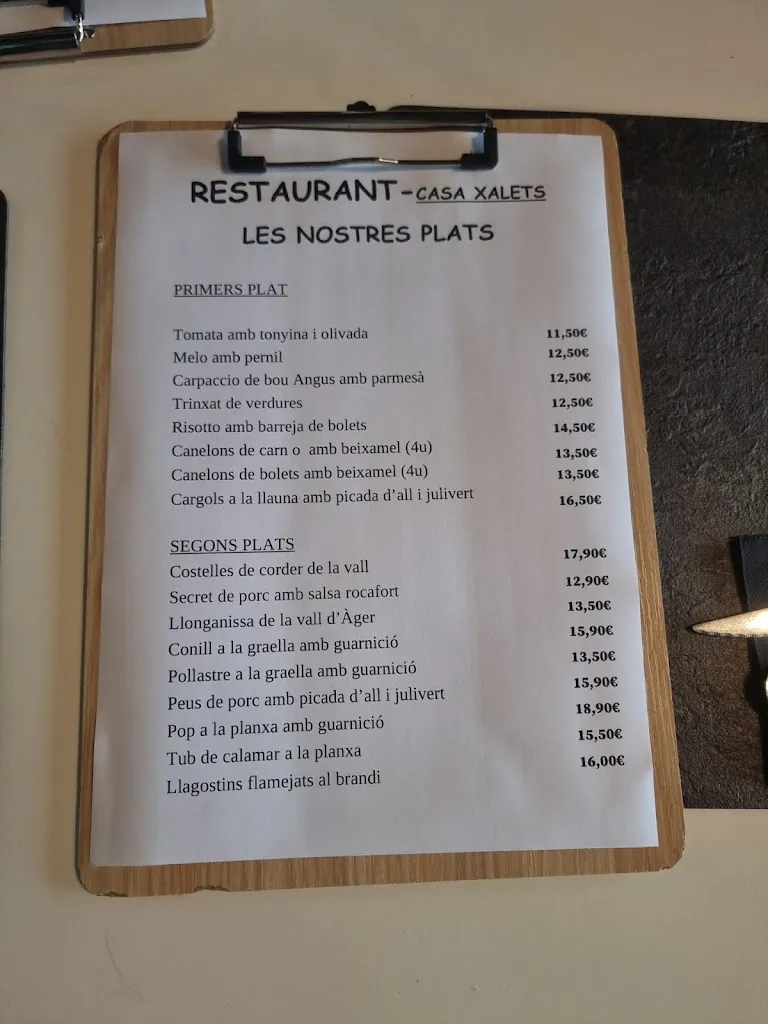 RESTAURANT-CASA XALETS
LES NOSTRES PLATS
PRIMERS PLAT
Tomata amb tonyina i olivada 11,50€
Melo amb pernil 12,50€
Carpaccio de bou Angus amb parmesà 12,50€
Trinxat de verdures 12,50€
Risotto amb barreja de bolets 14,50€
Canelons de carn o amb beixamel (4u) 13,50€
Canelons de bolets amb beixamel (4u) 13,50€
Cargols a la llauna amb picada d'all i julivert 16,50€
SEGONS PLATS
Costelles de corder de la vall 17,90€
Secret de porc amb salsa rocafort 12,90€
Llonganissa de la vall d'Àger 13,50€
Conill a la graella amb guarnició 15,90€
Pollastre a la graella amb guarnició 13,50€
Peus de porc amb picada d'all i julivert 15,90€
Pop a la planxa amb guarnició 18,90€
Tub de calamar a la planxa 15,50€
Llagostins flamejats al brandi 16,00€